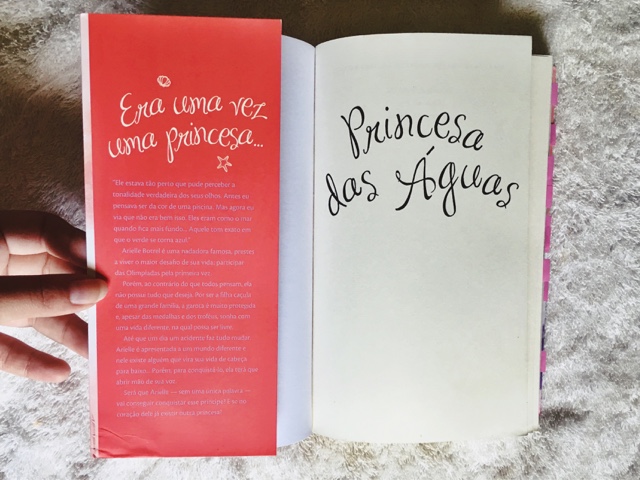 Era uma vez
uma princesa...
"Ele estava tão perto que pude perceber a
tonalidade verdadeira dos seus olhos. Antes eu
pensava ser da cor de uma piscina. Mas agora eu
via que não era bem isso. Eles eram como o mar
quando fica mais fundo... Aquele com exato em
que o verde se torna azul."
Arielle Botrel é uma nadadora famosa, prestes
a viver o maior desafio de sua vida: participar
das Olimpíadas pela primeira vez.
Porém, ao contrário do que todos pensam, ela
não possui tudo que deseja. Por ser a filha caçula
de uma grande família, a garota é superprotegida
e, apesar das medalhas e dos troféus, sonha com
uma vida diferente, na qual possa ser livre.
Até que um dia um acidente faz tudo mudar.
Arielle é apresentada a um mundo diferente e
nele existe alguém que vira sua vida de cabeça
para baixo... Porém, para acompanhá-lo, ela terá que
abrir mão de sua voz.
Será que Arielle — sem uma única palavra —
vai conseguir conquistar esse príncipe? E se no
coração dele já existir outra princesa?
Princesa
das Águas